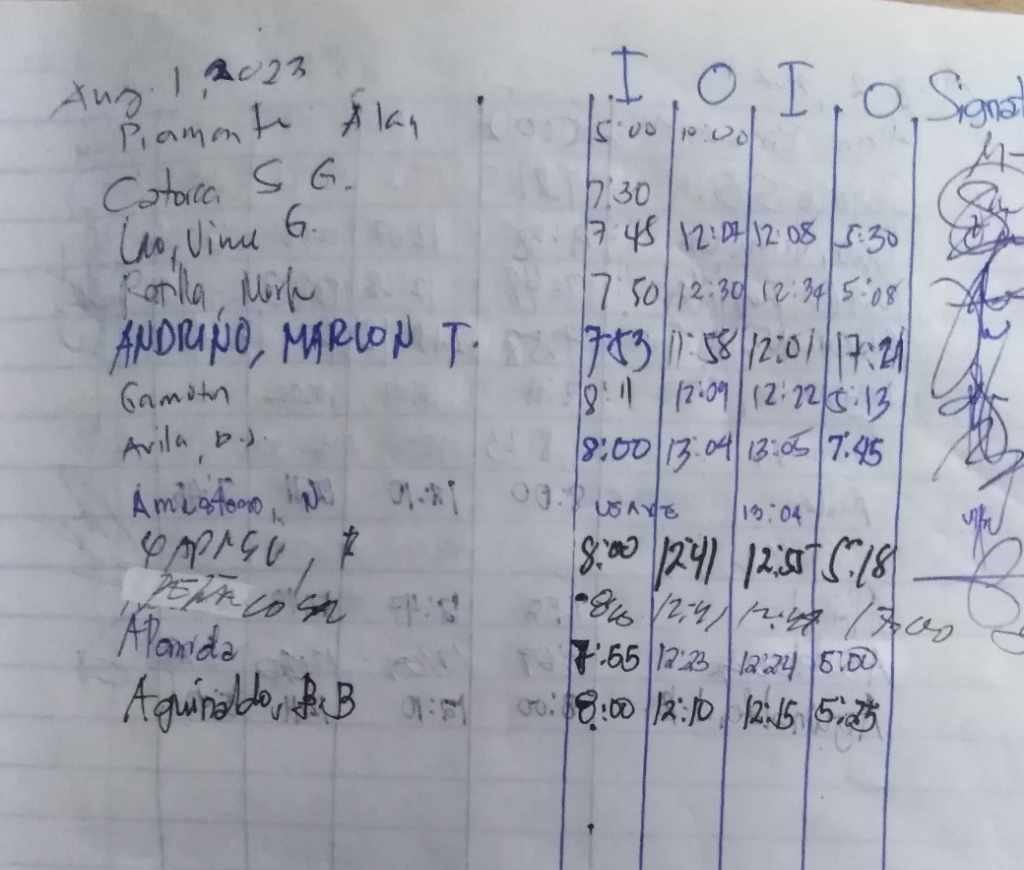 Aug. 1, 2023 I O I O Signat
Piamonte Alan 5:00 10:00
Catoica S G. 7:30
Lao, Vince G. 7:45 12:07 12:08 5:30
Rotilla, Mark 7:50 12:30 12:34 5:08
ANDRINO, MARLON T. 7:53 11:58 12:01 17:21
Gamotin 8:11 12:09 12:22 5:13
Avila, D.J. 8:00 13:04 13:05 7:45
N 13:04
8:00 12:41 12:55 5:18
12:41
Alomida 7:55 12:23 12:24 5:00
Aguinaldo, B.B 8:00 12:10 12:15 5:25